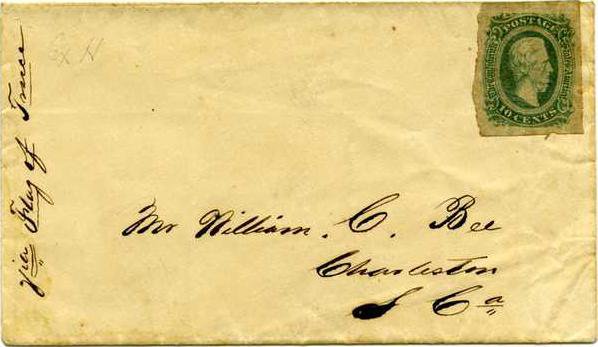 Ex H
via Flag of Truce
POSTAGE
The Confederate States of America
10 CENTS
Mr William. C. Bee
Charleston
S Ca